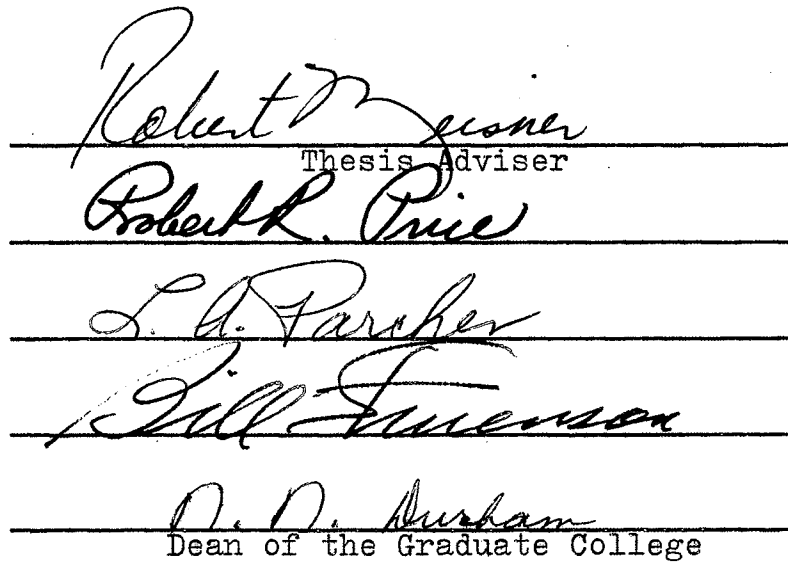 Robert Meisner
Thesis Adviser
Robert R. Price
L. A. Parcher
Bill
N. N. Durham
Dean of the Graduate College